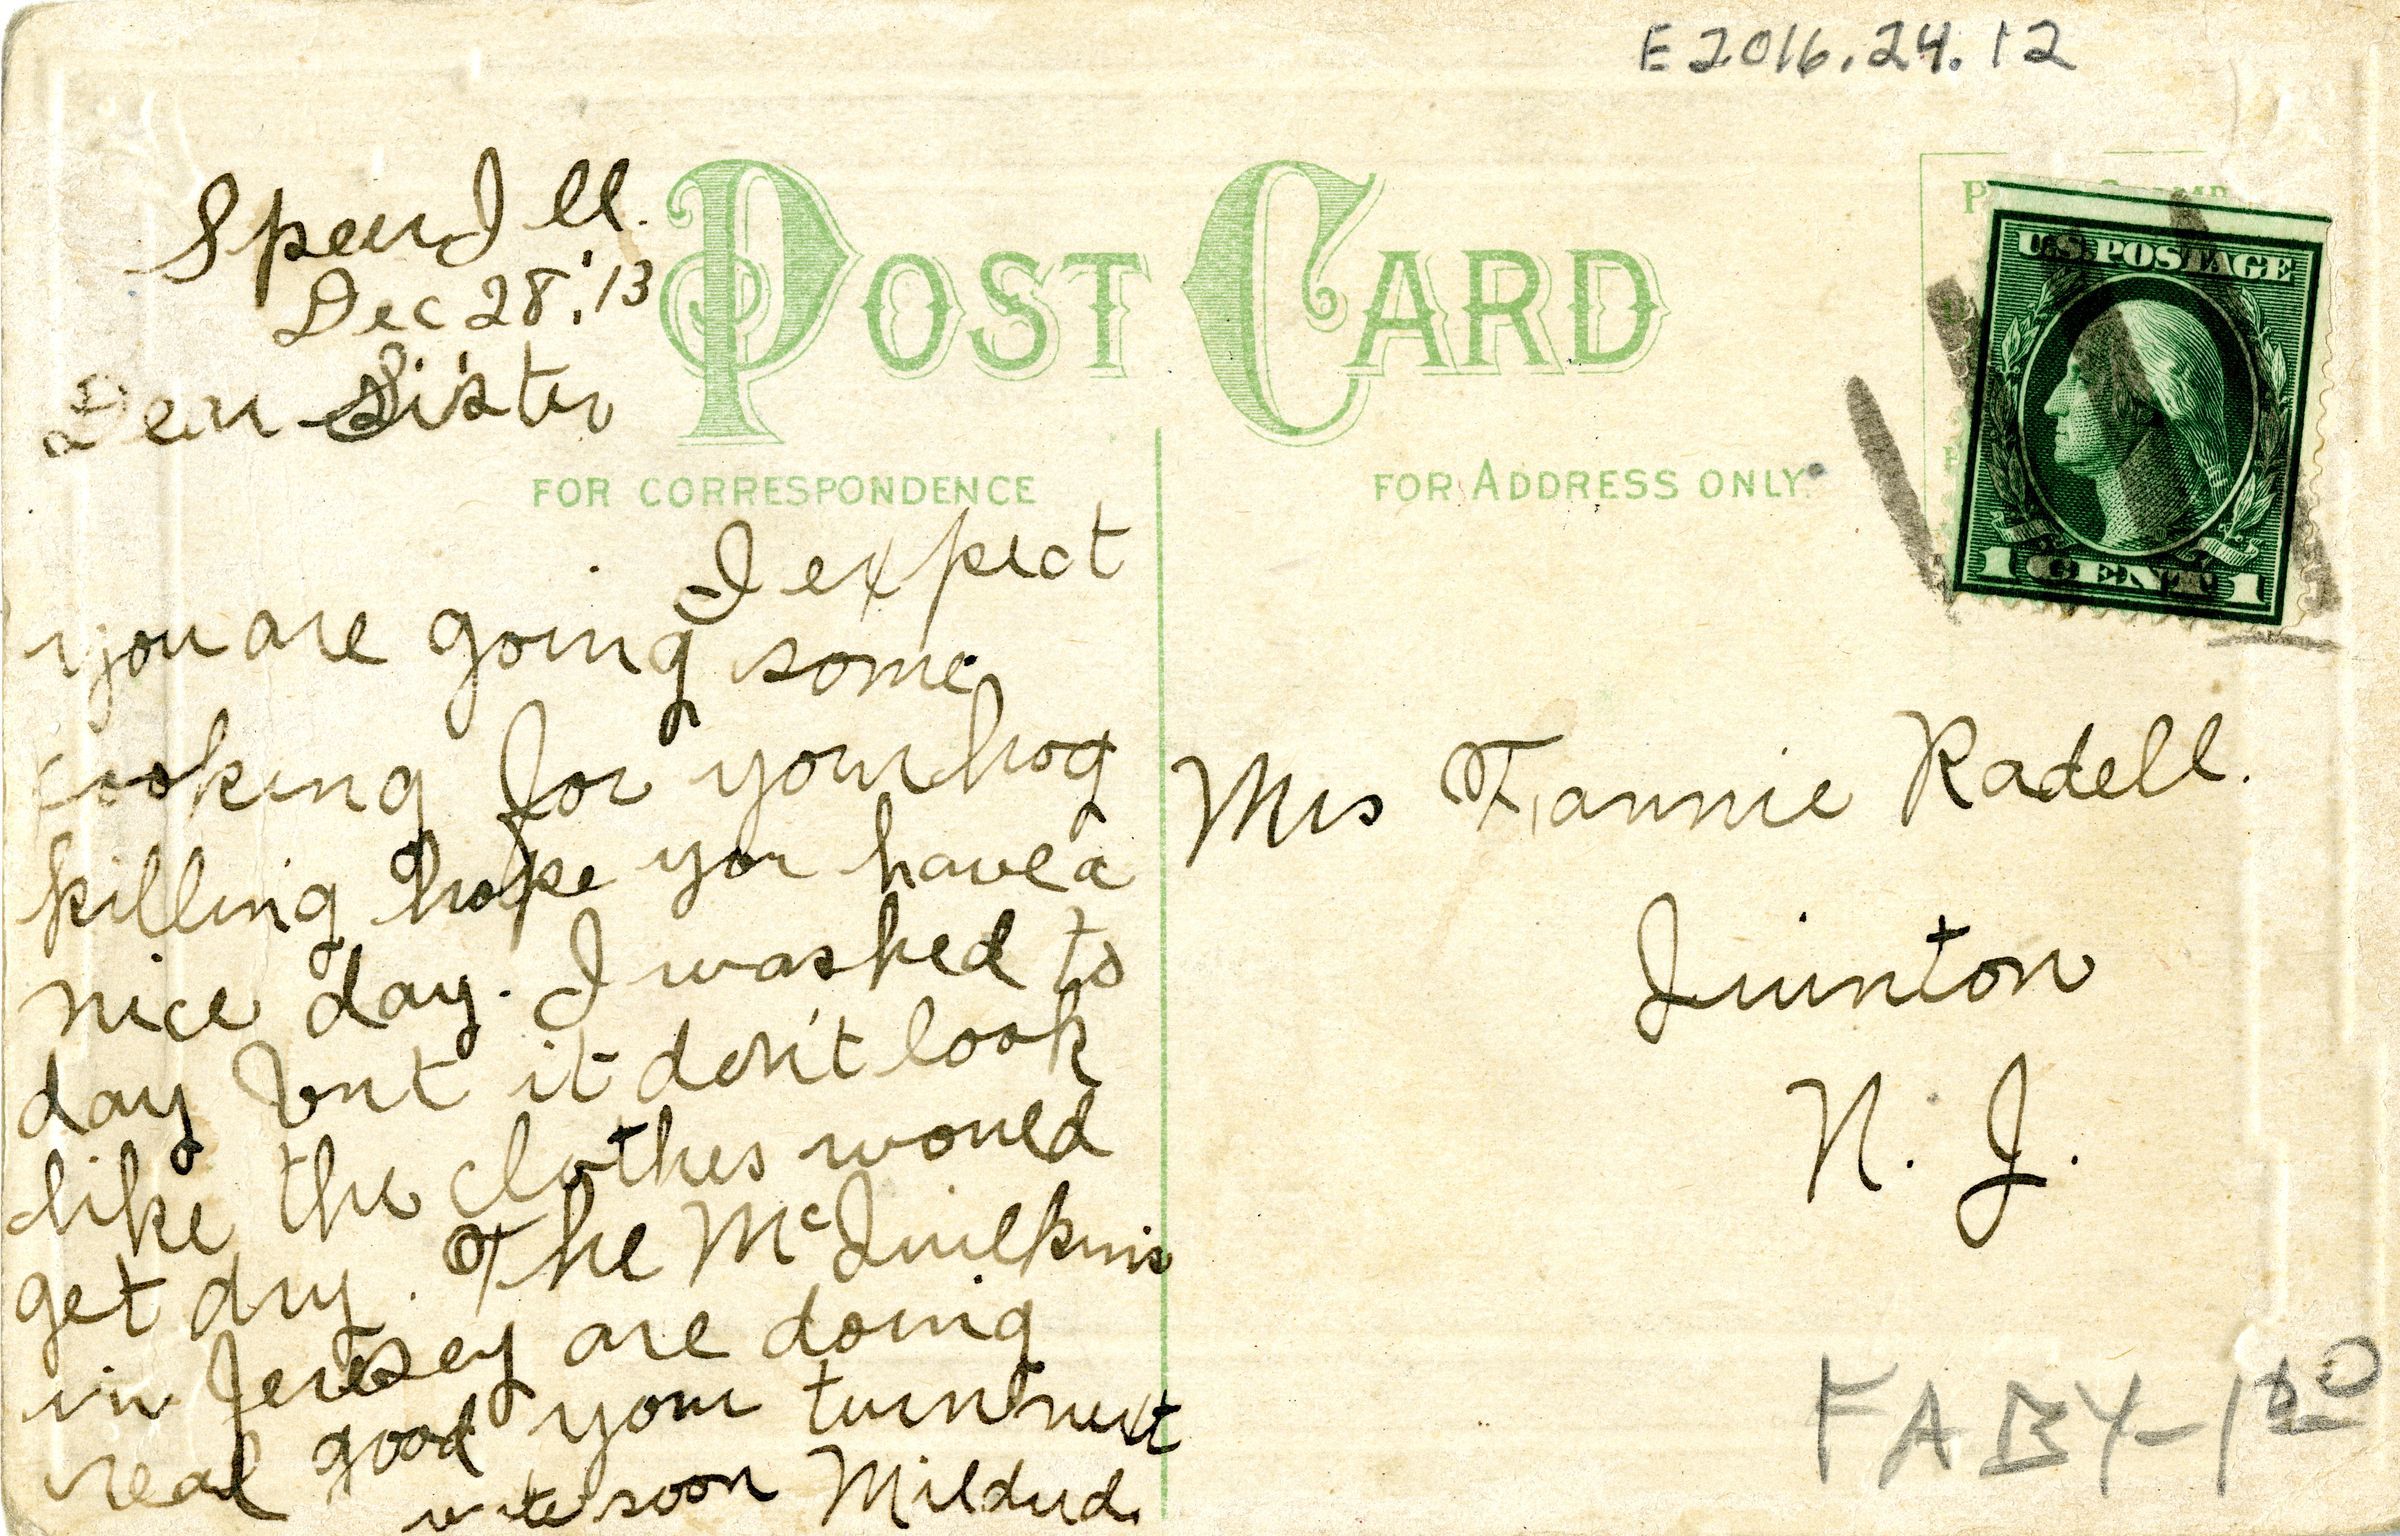 E2016.24.12
Speer Ill.
Dec 28, '13
POST CARD
Dear Sister
FOR CORRESPONDENCE
FOR ADDRESS ONLY
U.S. POSTAGE
1 CENT 1
I expect
you are going some
cooking for your hog
killing hope you have a
nice day. I washed to
day but it don't look
like the clothes would
get dry. The McQuilkins
in Jersey are doing
real good your turn next
write soon Mildred.
Mrs Fannie Radell.
Quinton
N. J.
FABY-1.50